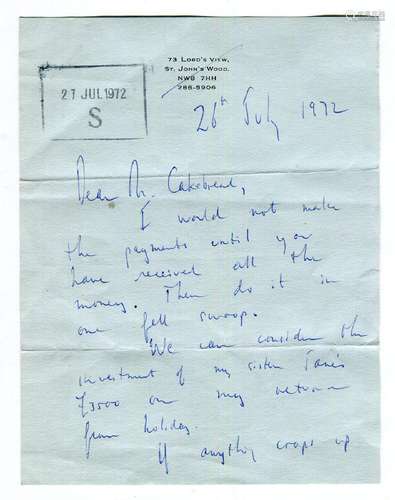 73 LORD'S VIEW,
ST. JOHN'S WOOD,
NW8 7HH
286-5906
27 JUL 1972
S
26th July 1972
Dear Mr. Cakebread,
I would not make
the payments until you
have received all the
money. Then do it in
one fell swoop.
We can consider the
investment of my sister Jane's
£3500 on my return
from holiday.
If anything crops up